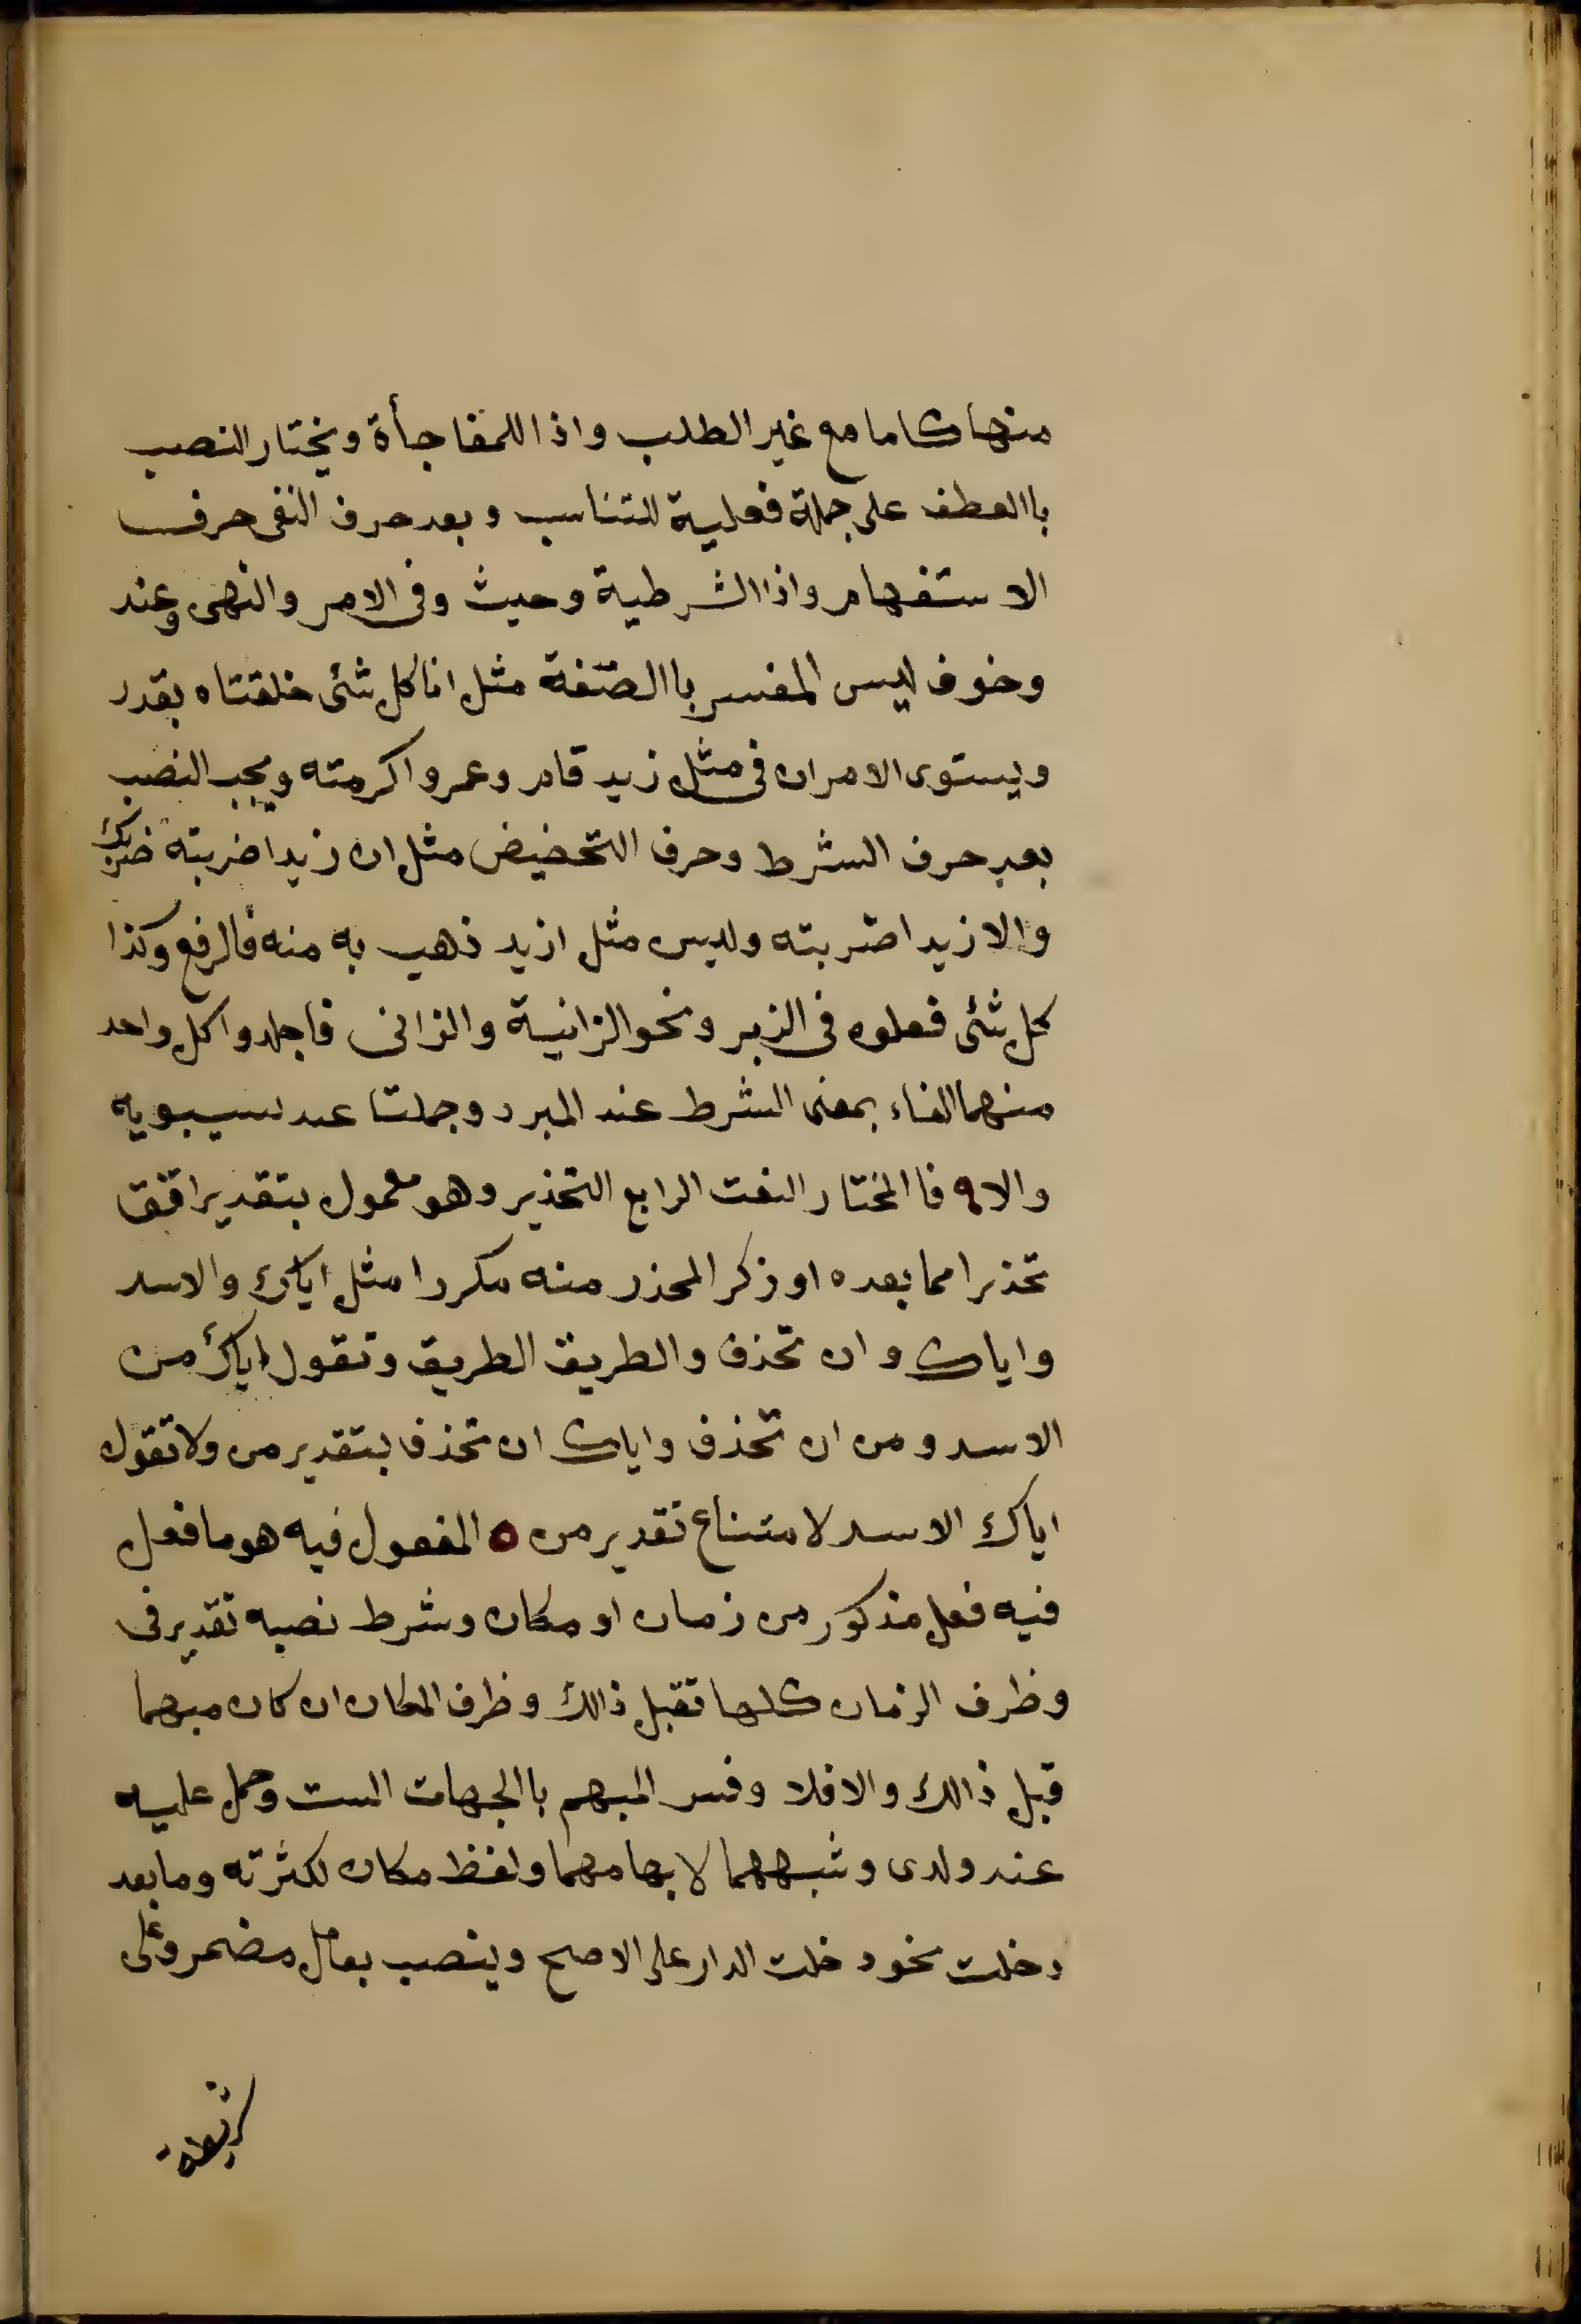 منها كاما مع غير الطلب واذا اللمفاجأة ويختار النصب
باالعطف على جملة فعلية للتناسب وبعد حرف النفى حرف
الاستفهام واذا الشرطية وحيث وفى الامر والنهى وعند
وخوف لبس المفسر باالصّفة مثل انا كل شئى خلقتاه بقدر
ويستوى الامران فى مثل زيد قام وعمروا كرمته ويجب النصب
بعد حرف الشرط وحرف التحضيض مثل ان زيدا ضربته ضربك
والا زيدا ضربته وليس مثل ازيد ذهب به منه فالرفع وكذا
كل شئى فعلوه فى الزبر ونحو الزانية والزانى فاجلدوا كل واحد
منهما الفاء بمعنى الشرط عند المبرد وجملتا عند سيبويه
والا فاالمختار النعت الرابع التحذير وهو معمول بتقدير اتق
تحذيرا مما بعده او ذكر المحذر منه مكررا مثل اياك والاسد
واياك وان تحذف والطريق الطريق وتقول اياك من
الاسد ومن ان تحذف واياك ان تحذف بتقدير من ولا تقول
اياك الاسد لامتناع تقدير من ه المفعول فيه هو ما فعل
فيه فعل مذكور من زمان او مكان وشرط نصبه تقدير فى
وظرف الزمان كلها تقبل ذالك وظرف المكان ان كان مبهما
قبل ذالك والا فلا وفسر المبهم باالجهات الست وحمل عليه
عند ولدى وشبههما لابهامهما ولفظ مكان لكثرته وما بعد
دخلت نحو دخلت الدار على الاصح وينصب بعامل مضمر وعلى